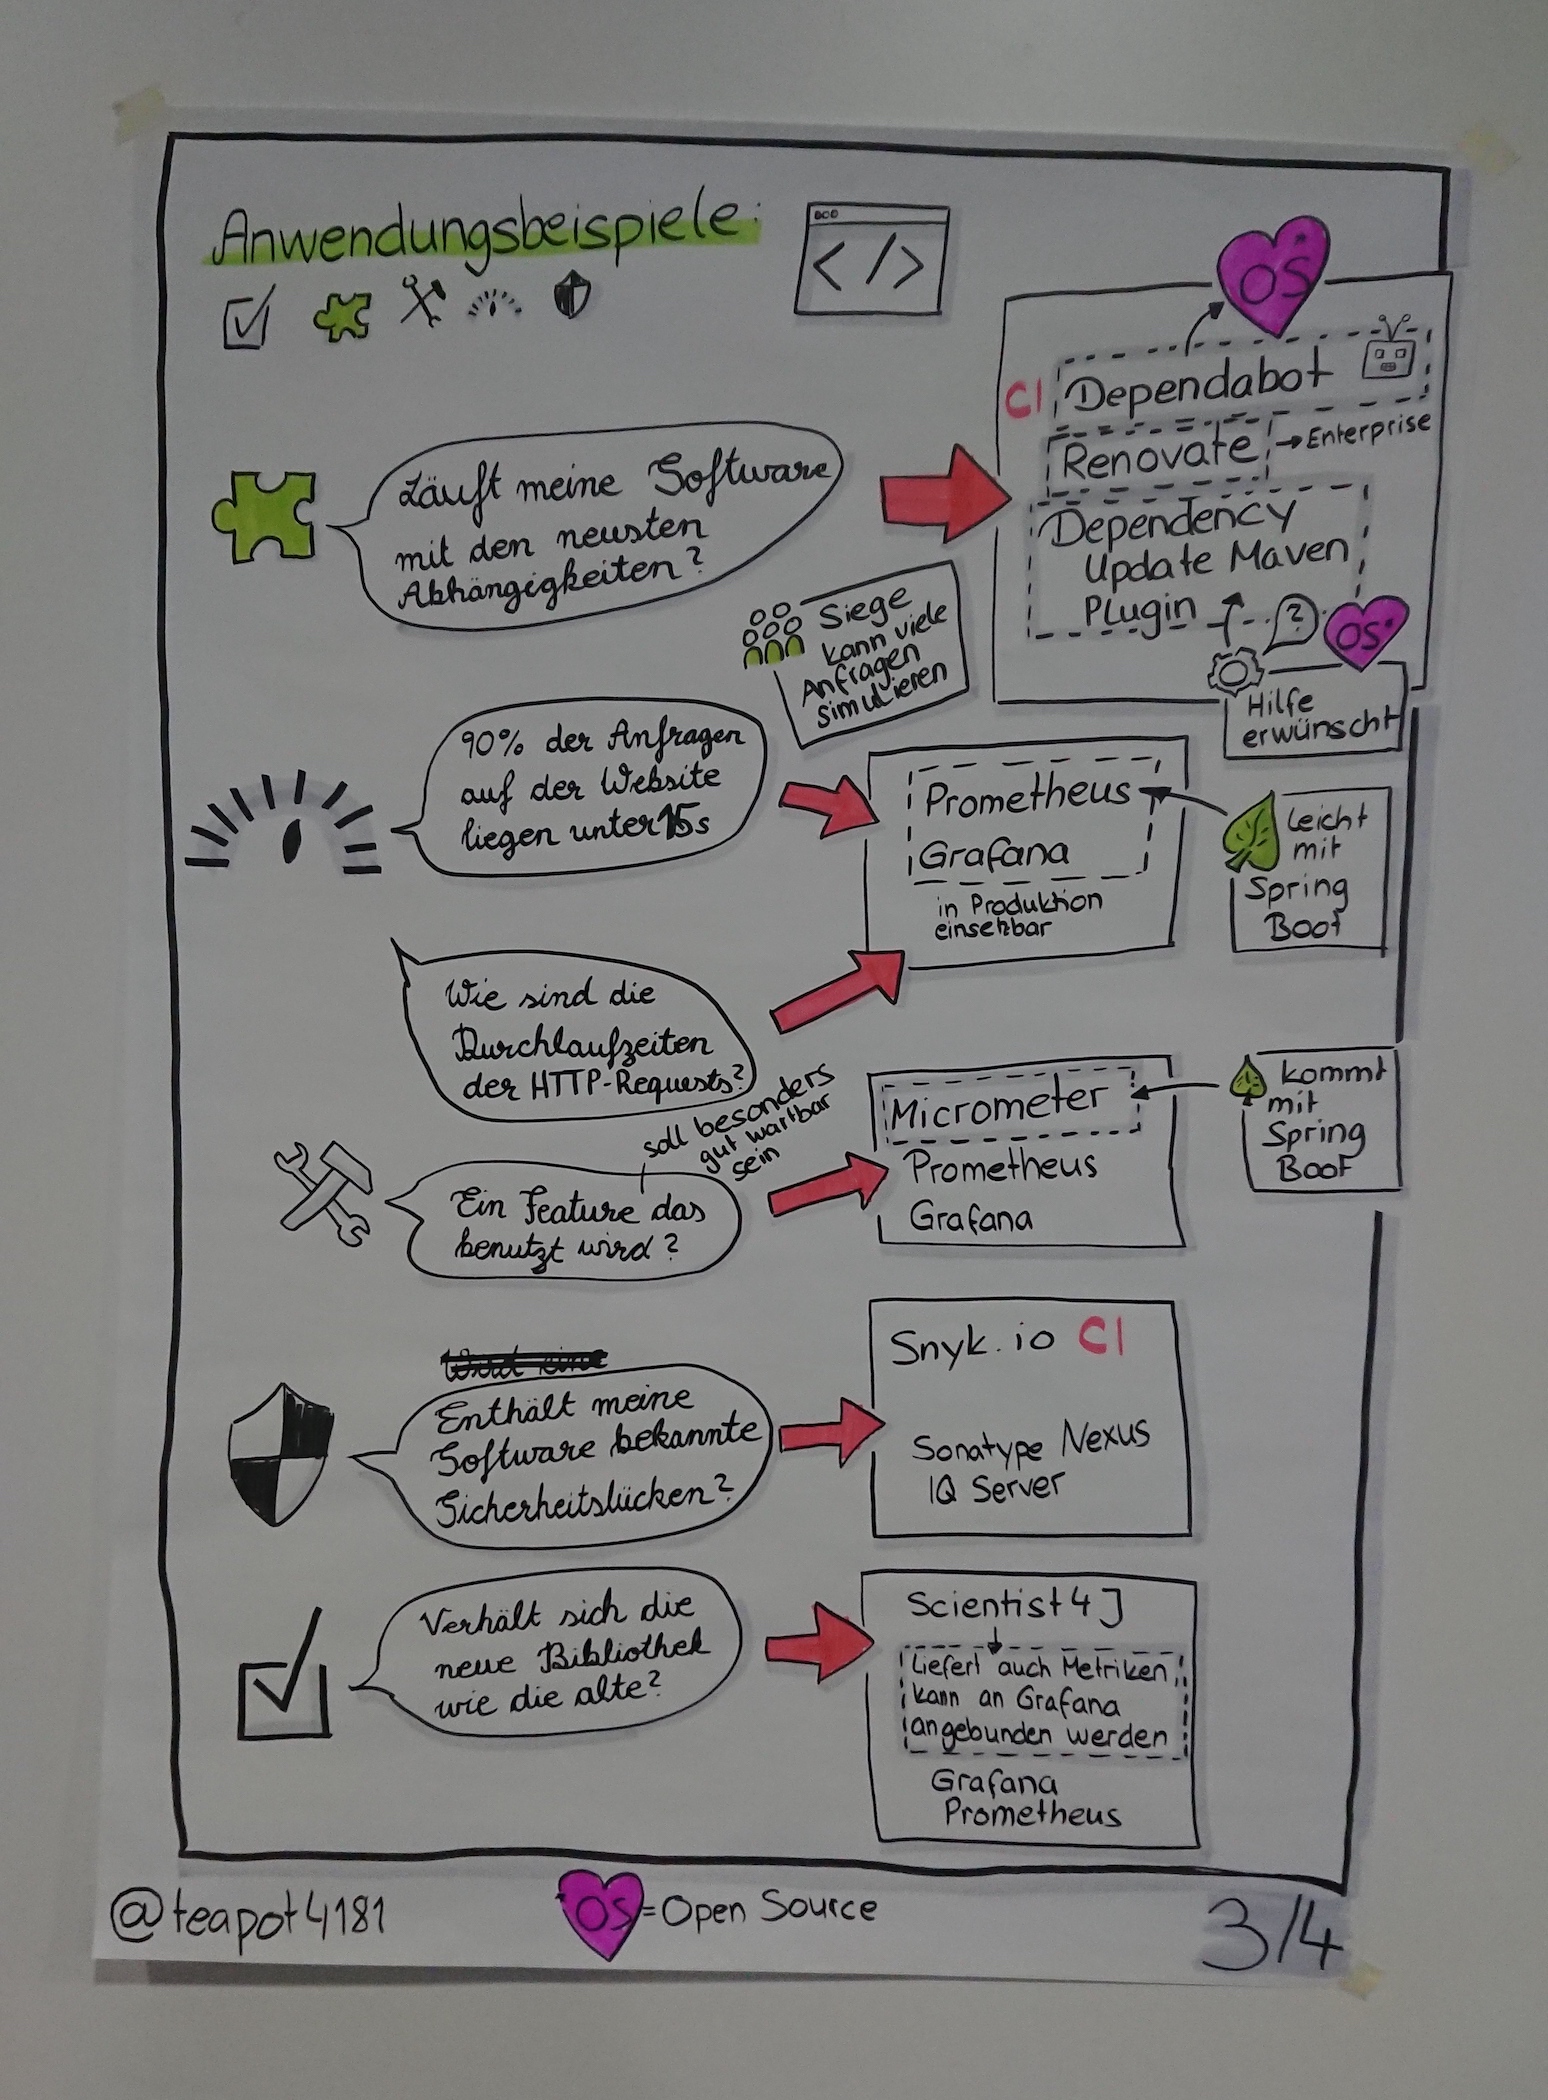 Anwendungsbeispiele:
</>
OS
CI
Dependabot
Renovate → Enterprise
Dependency
Update Maven
Plugin
?
OS
Hilfe
erwünscht
Läuft meine Software
mit den neusten
Abhängigkeiten?
Siege
kann viele
Anfragen
simulieren
90% der Anfragen
auf der Website
liegen unter 15s
Prometheus
Grafana
in Produktion
einsetzbar
Leicht
mit
Spring
Boot
Wie sind die
Durchlaufzeiten
der HTTP-Requests?
soll besonders
gut wartbar
sein
Ein Feature das
benutzt wird?
Micrometer
Prometheus
Grafana
kommt
mit
Spring
Boot
Wird eine
Enthält meine
Software bekannte
Sicherheitslücken?
Snyk.io CI
Sonatype Nexus
IQ Server
Verhält sich die
neue Bibliothek
wie die alte?
Scientist4J
Liefert auch Metriken,
kann an Grafana
angebunden werden
Grafana
Prometheus
@teapot4181
OS = Open Source
3/4